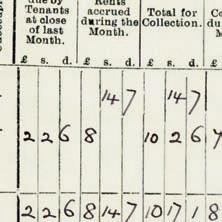 due by Rents
Tenants accrued Total for Co
at close during the Collection. du
of last Month. M
Month.
£ s. d. £ s. d. £ s. d. £
14 7 14 7
2 2 6 8 10 2 6 7
2 2 6 8 14 7 10 17 1 8